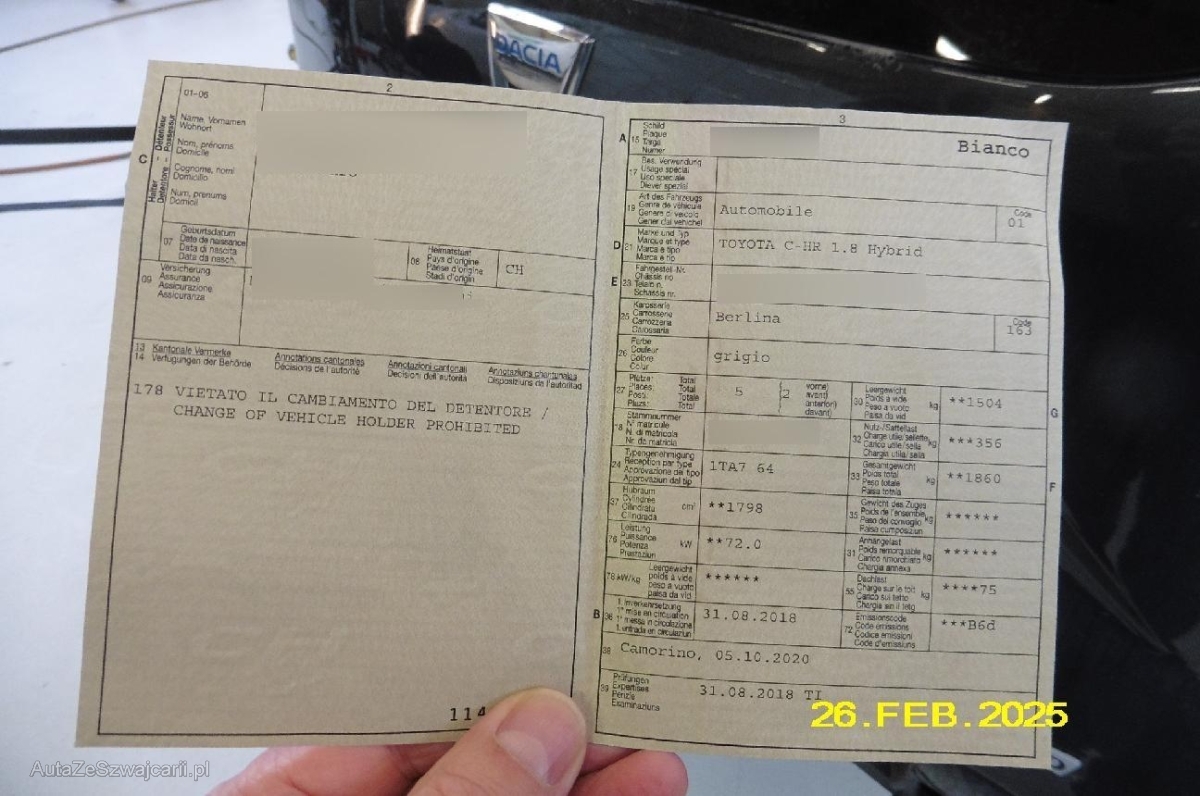 DACIA
2
01-06
C
Halter Détenteur
Detentore Possessur
Name, Vornamen
Wohnort
Nom, prénoms
Domicile
Cognome, nomi
Domicilio
Num, prenums
Domicil
07
Geburtsdatum
Date de naissance
Data di nascita
Data da nasch.
08
Heimatstaat
Pays d'origine
Paese d'origine
Stadi d'origin
CH
09
Versicherung
Assurance
Assicurazione
Assicuranza
13 Kantonale Vermerke
14 Verfügungen der Behörde
Annotations cantonales
Décisions de l'autorité
Annotazioni cantonali
Decisioni dell'autorità
Annotaziuns chantunalas
Disposiziuns da l'autoritad
178 VIETATO IL CAMBIAMENTO DEL DETENTORE /
CHANGE OF VEHICLE HOLDER PROHIBITED
114
3
A 15
Schild
Plaque
Targa
Numer
Bianco
17
Bes. Verwendung
Usage spécial
Uso speciale
Diever spezial
19
Art des Fahrzeugs
Genre de véhicule
Genere di veicolo
Gener dal vehichel
Automobile
Code
01
D 21
Marke und Typ
Marque et type
Marca e tipo
Marca e tip
TOYOTA C-HR 1.8 Hybrid
E 23
Fahrgestell-Nr.
Châssis no
Telaio n.
Schassis nr.
25
Karosserie
Carrosserie
Carrozzeria
Carossaria
Berlina
Code
163
26
Farbe
Couleur
Colore
Colur
grigio
27
Plätze: Total
Places: Total
Posti: Totale
Plazs: Total
5
(2
vorne)
avant)
anteriori)
davant)
30
Leergewicht
Poids à vide
Peso a vuoto
Paisa da vid
kg
**1504
G
18
Stammnummer
N° matricule
N. di matricola
Nr. da matricla
32
Nutz-/Sattellast
Charge utile/sellette
Carico utile/sella
Chargia utila/sella
kg
***356
24
Typengenehmigung
Réception par type
Approvazione del tipo
Approvaziun dal tip
1TA7 64
33
Gesamtgewicht
Poids total
Peso totale
Paisa totala
kg
**1860
F
37
Hubraum
Cylindrée
Cilindrata
Cilindrada
cm³
**1798
35
Gewicht des Zuges
Poids de l'ensemble
Peso del convoglio
Paisa cumposiziun
kg
******
76
Leistung
Puissance
Potenza
Prestaziun
kW
**72.0
31
Anhängelast
Poids remorquable
Carico rimorchiato
Chargia annexa
kg
******
78 kW/kg
Leergewicht
poids à vide
peso a vuoto
paisa da vid
******
55
Dachlast
Charge sur le toit
Carico sul tetto
Chargia sin il tetg
kg
****75
B 36
1. Inverkehrsetzung
1re mise en circulation
1a messa in circolazione
1. entrada en circulaziun
31.08.2018
72
Emissionscode
Code émissions
Codice emissioni
Code d'emissiuns
***B6d
38 Camorino, 05.10.2020
39
Prüfungen
Expertises
Perizie
Examinaziuns
31.08.2018 TI
26.FEB.2025
AutaZeSzwajcarii.pl